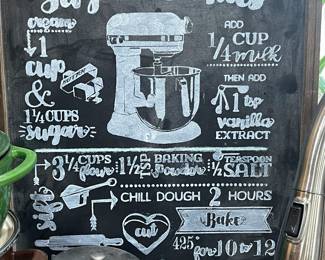 cream
1
cup
&
1 1/4 CUPS
sugar
ADD
1/4 CUP
milk
THEN ADD
1 tsp
vanilla
EXTRACT
3 1/4 CUPS flour
1 1/2 TSP BAKING powder
1/2 TEASPOON SALT
sift
CHILL DOUGH 2 HOURS
cut
Bake
425 for 10 to 12